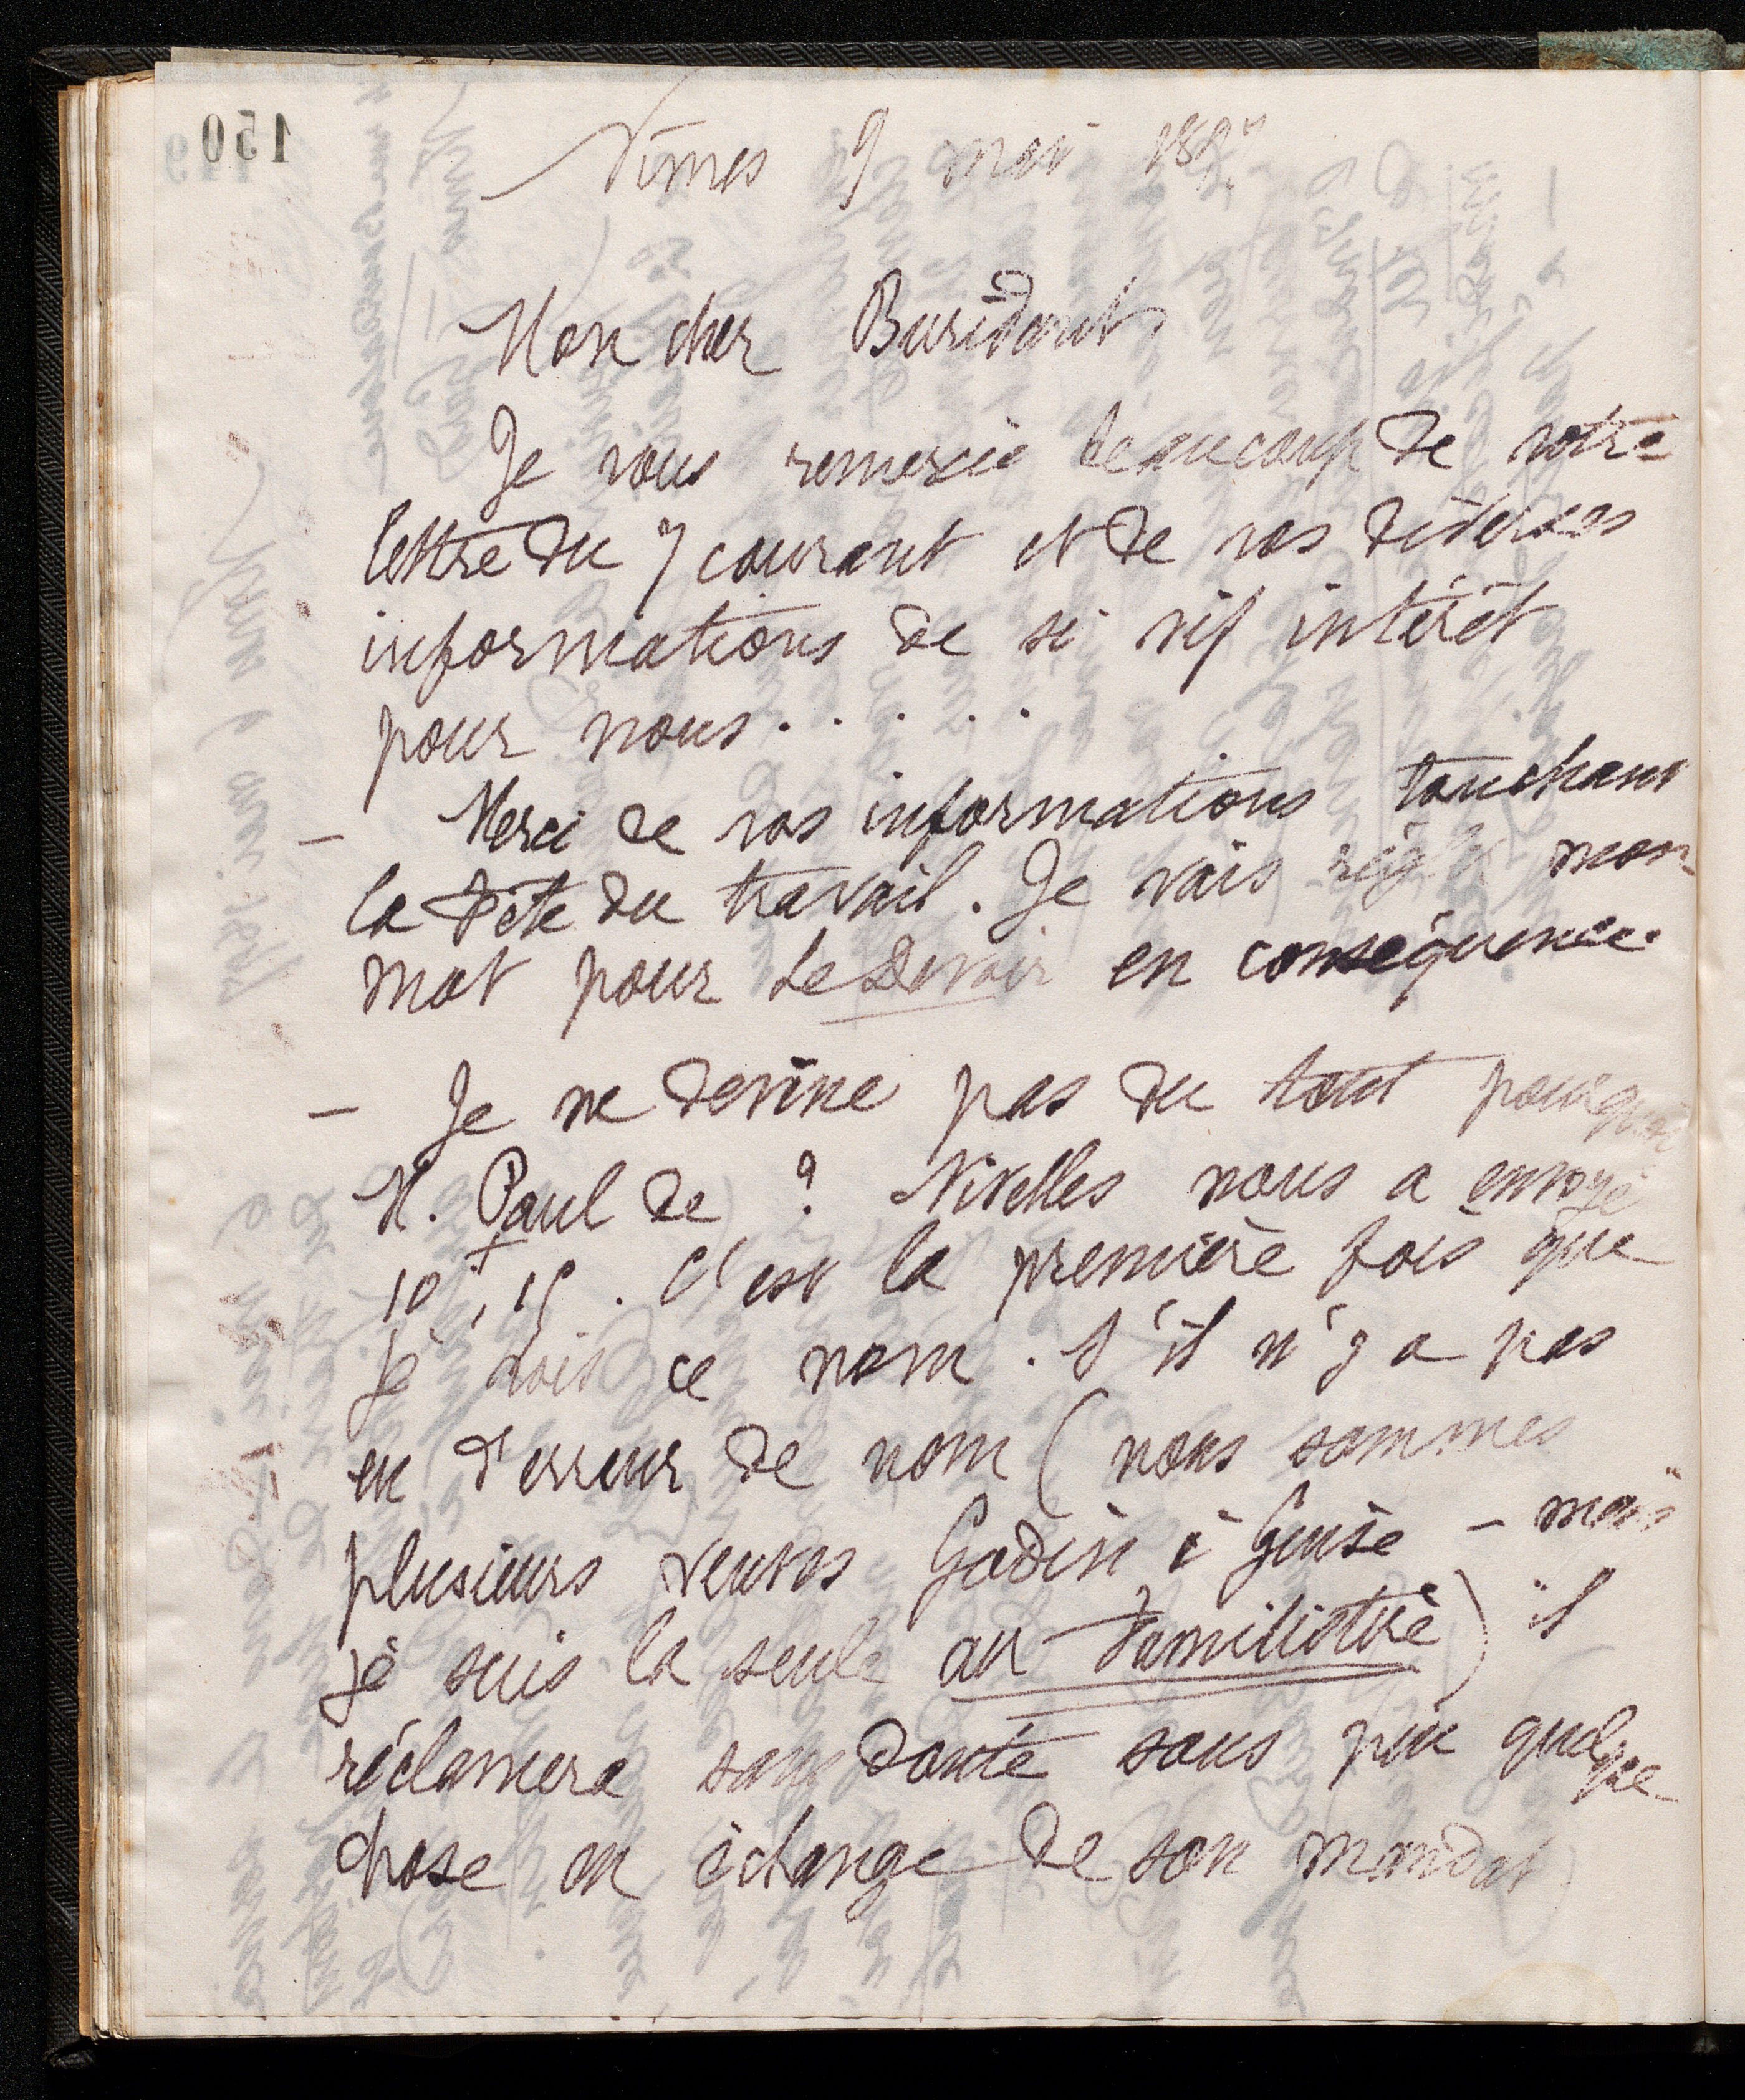 150
Nîmes 9 mai 1897
Mon cher Buridant
Je vous remercie beaucoup de votre
lettre du 7 courant et de vos diverses
informations de si vif intérêt
pour nous.....
– Merci de vos informations touchant
la Fête du travail. Je vais régler mon
mot pour Le Devoir en conséquence.
– Je ne devine pas du tout pourquoi
M. Paul de ? Nivelles nous a envoyé
10f,15. C'est la première fois que
je vois ce nom. S'il n'y a pas
eu d'erreur de nom (nous sommes
plusieurs veuves Godin à Guise – mais
je suis la seule au Familistère) il
réclamera sans doute sous peu quelque
chose en échange de son mandat